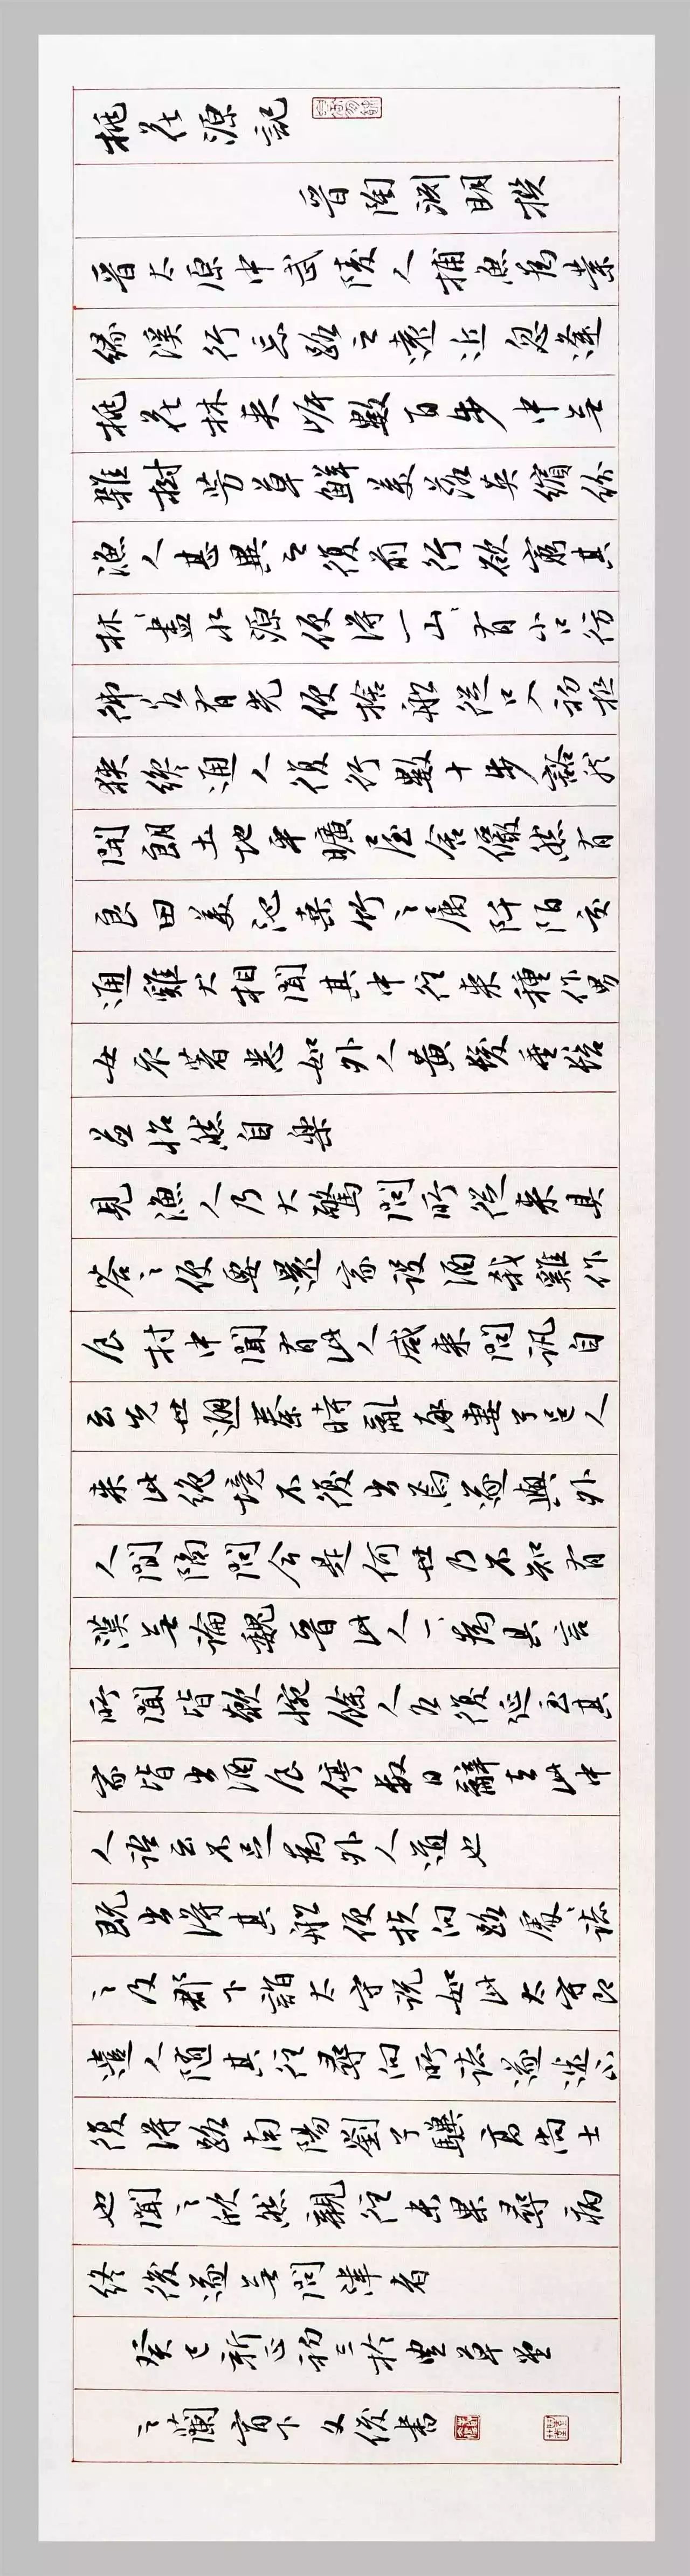 桃花源記
晉陶淵明撰
晉太原中武陵人捕魚為業
緣溪行忘路之遠近忽逢
桃花林夾岸數百步中無
雜樹芳草鮮美落英繽紛
漁人甚異之復前行欲窮其
林、盡水源便得一山、有小口彷
彿若有光便捨船從口入初極
狹纔通人復行數十步豁然
開朗土地平曠屋舍儼然有
良田美池桑竹之屬阡陌交
通雞犬相聞其中往來種作男
女衣著悉如外人黃髮垂髫
並怡然自樂
見漁人乃大驚問所從來具
答之便要還家設酒殺雞作
食村中聞有此人咸來問訊自
云先世避秦時亂率妻子邑人
來此絕境不復出焉遂與外
人間隔問今是何世乃不知有
漢無論魏晉此人一、為具言
所聞皆歎惋餘人各復延至其
家皆出酒食停數日辭去此中
人語云不足為外人道也
既出得其船便扶向路處、誌
之及郡下詣太守說如此太守即
遣人隨其往尋向所誌遂迷不
復得路南陽劉子驥高尚士
也聞之欣然親往未果尋病
終後遂無問津者
癸巳新正初三於豐草堂
之蘭窗下文俊書